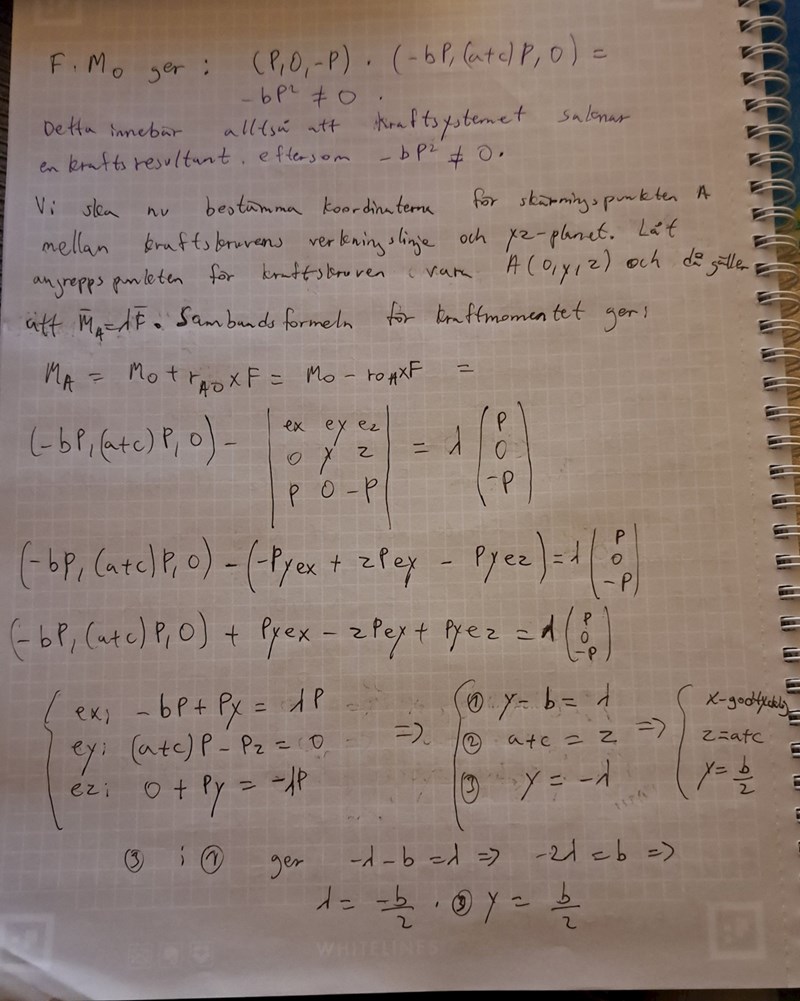 F · Mo ger : (P, 0, -P) · (-bP, (a+c)P, 0) =
-bP² ≠ 0 .
Detta innebär alltså att kraftsystemet saknar
en kraftsresultant, eftersom -bP² ≠ 0.
Vi ska nu bestämma koordinaterna för skärningspunkten A
mellan kraftskruvens verkningslinje och xz-planet. Låt
angreppspunkten för kraftskruven vara A(0,y,z) och då gäller
att M̄A = λF̄. Sambandsformeln för kraftmomentet ger:
MA = Mo + rAO × F = Mo - roA×F =
(-bP, (a+c)P, 0) - | ex ey ez ; 0 y z ; P 0 -P | = λ (P ; 0 ; -P)
(-bP, (a+c)P, 0) - (-Pyex + zPey - Pyez) = λ (P ; 0 ; -P)
(-bP, (a+c)P, 0) + Pyex - zPey + Pyez = λ (P ; 0 ; -P)
{ ex; -bP + Py = λP ⇒ { ① y - b = λ ⇒ { x-godtycklig
ey; (a+c)P - Pz = 0 ② a+c = z z = a+c
ez; 0 + Py = -λP ③ y = -λ y = b/2
③ i ① ger -λ - b = λ ⇒ -2λ = b ⇒
λ = -b/2 . ③ y = b/2
WHITELINES